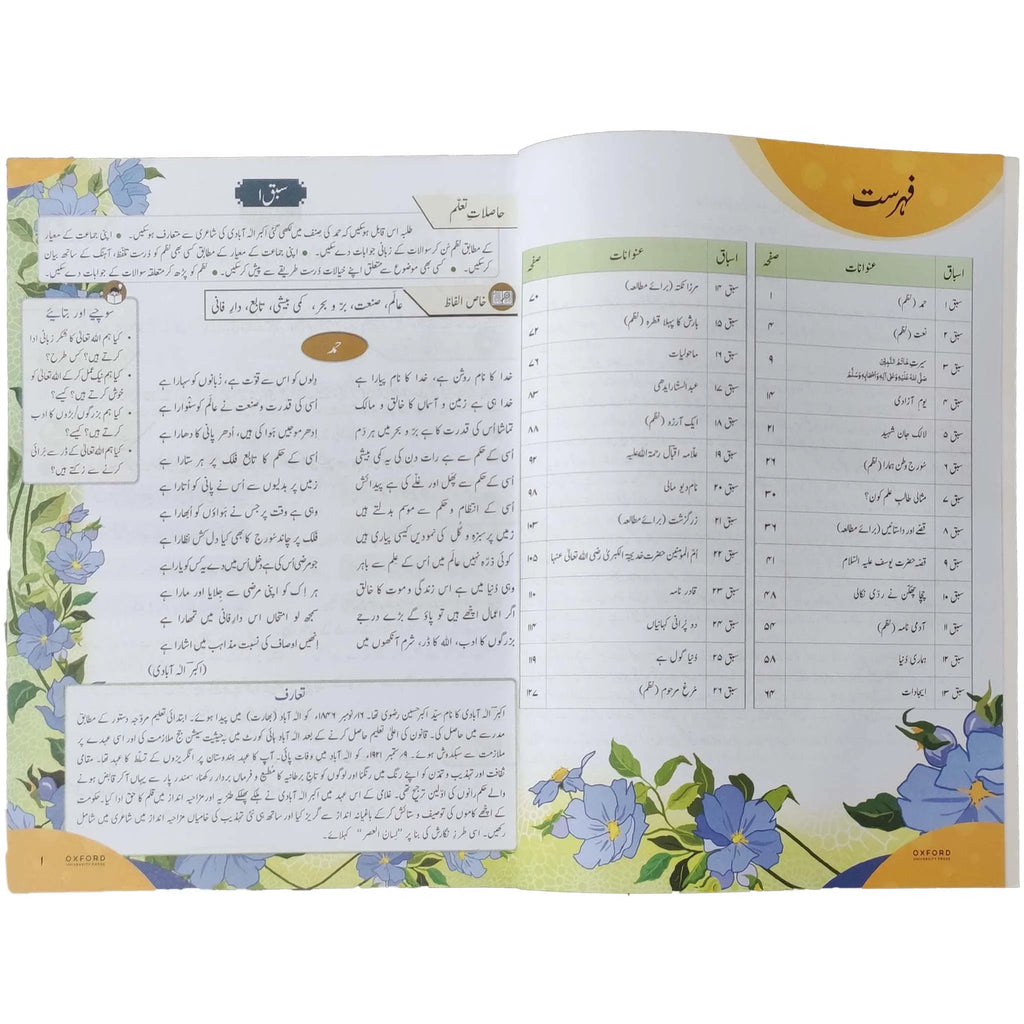 فہرست
اسباق عنوانات صفحہ
سبق ۱ حمد (نظم) ۱
سبق ۲ نعت (نظم) ۴
سبق ۳ سیرت خاتم النبیین صلی اللہ علیہ وعلی آلہ واصحابہ وسلم ۹
سبق ۴ یومِ آزادی ۱۴
سبق ۵ لالک جان شہید ۲۱
سبق ۶ سورج وطن ہمارا (نظم) ۲۶
سبق ۷ مثالی طالبِ علم کون؟ ۳۰
سبق ۸ قصّے اور داستانیں (برائے مطالعہ) ۳۶
سبق ۹ قصّہ حضرت یوسف علیہ السّلام ۴۱
سبق ۱۰ چچا چھکّن نے ردّی نکالی ۴۸
سبق ۱۱ آدمی نامہ (نظم) ۵۴
سبق ۱۲ ہماری دُنیا ۵۸
سبق ۱۳ ایجادات ۶۴
اسباق عنوانات صفحہ
سبق ۱۴ مرزا نکتہ (برائے مطالعہ) ۷۰
سبق ۱۵ بارش کا پہلا قطرہ (نظم) ۷۲
سبق ۱۶ ماحولیات ۷۶
سبق ۱۷ عبدالستار ایدھی ۸۳
سبق ۱۸ ایک آرزو (نظم) ۸۸
سبق ۱۹ علامہ اقبال رحمۃ اللہ علیہ ۹۲
سبق ۲۰ نام دیو مالی ۹۸
سبق ۲۱ زرگزشت (برائے مطالعہ) ۱۰۳
سبق ۲۲ اُمّ المؤمنین حضرت خدیجۃ الکبریٰ رضی اللہ تعالیٰ عنہا ۱۰۵
سبق ۲۳ قادر نامہ ۱۱۰
سبق ۲۴ دو پرانی کہانیاں ۱۱۴
سبق ۲۵ دُنیا گول ہے ۱۱۹
سبق ۲۶ مُرغِ مرحوم (نظم) ۱۲۷
OXFORD
UNIVERSITY PRESS
سبق ۱
حاصلاتِ تعلّم
طلبہ اس قابل ہوسکیں کہ حمد کی صنف میں لکھی گئی اکبر الہٰ آبادی کی شاعری سے متعارف ہوسکیں۔ • اپنی جماعت کے معیار
کے مطابق نظم سُن کر سوالات کے زبانی جوابات دے سکیں۔ • اپنی جماعت کے معیار کے مطابق کسی بھی نظم کو درست تلفّظ، آہنگ کے ساتھ بیان
کرسکیں۔ • کسی بھی موضوع سے متعلق اپنے خیالات درست طریقے سے پیش کرسکیں۔ • نظم کو پڑھ کر متعلقہ سوالات کے جوابات دے سکیں۔
خاص الفاظ
عالَم، صنعت، بر و بحر، کمی بیشی، تابع، دارِ فانی
سوچیے اور بتائیے
• کیا ہم اللہ تعالیٰ کا شکر زبانی ادا
کرتے ہیں؟ کس طرح؟
• کیا ہم نیک عمل کرکے اللہ تعالیٰ کو
خوش کرتے ہیں؟ کیسے؟
• کیا ہم بزرگوں/بڑوں کا ادب
کرتے ہیں؟ کیسے؟
• کیا ہم اللہ تعالیٰ کے ڈر سے برائی
کرنے سے رُکتے ہیں؟
حمد
خدا کا نام روشن ہے، خدا کا نام پیارا ہے دلوں کو اس سے قوّت ہے، زُبانوں کو سہارا ہے
خدا ہی ہے زمین و آسماں کا خالق و مالک اُسی کی قدرت و صنعت نے عالَم کو سنْوارا ہے
تماشا اُس کی قدرت کا ہے بر و بحر میں ہر دم اِدھر موجیں ہوا کی ہیں، اُدھر پانی کا دھارا ہے
اُسی کے حکم سے ہے رات دن کی یہ کمی بیشی اُسی کے حکم کا تابع فلک پر ہر ستارا ہے
اُسی کے حکم سے پھل اور غلّے کی ہے پیدائش زمیں پر بدلیوں سے اُس نے پانی کو اُتارا ہے
اُسی کے انتظام و حکم سے موسم بدلتے ہیں وہی ہے وقت پر جس نے ہواؤں کو اُبھارا ہے
زمیں پر سبزہ و گُل کی نمودیں کیسی پیاری ہیں فلک پر چاند سورج کا بھی کیا دل کش نظارا ہے
کوئی ذرّہ نہیں عالَم میں اس کے علم سے باہر جو مرضی اُس کی ہے دخل اُس میں دے یہ کس کو یارا ہے
وہی دُنیا میں ہے اس زندگی و موت کا خالق ہر اِک کو اپنی مرضی سے جلایا اور مارا ہے
اگر اعمال اچّھے ہیں تو پاؤ گے بڑے درجے سمجھ لو امتحاں اس دارِ فانی میں تمھارا ہے
بزرگوں کا ادب، اللہ کا ڈر، شرم آنکھوں میں انھیں اوصاف کی نسبت مذاہب میں اشارا ہے
(اکبر الہٰ آبادی)
تعارف
اکبر الہٰ آبادی کا نام سیّد اکبر حسین رضوی تھا۔ ۱۶/نومبر ۱۸۴۶ء کو الہٰ آباد (بھارت) میں پیدا ہوئے۔ ابتدائی تعلیم مروّجہ دستور کے مطابق
مدرسے میں حاصل کی۔ قانون کی اعلیٰ تعلیم حاصل کرنے کے بعد الہٰ آباد ہائی کورٹ میں بحیثیت سیشن جج ملازمت کی اور اسی عہدے پر
ملازمت سے سبکدوش ہوئے۔ ۹/ستمبر ۱۹۲۱ء کو الہٰ آباد میں وفات پائی۔ آپ کا عہد ہندوستان پر انگریزوں کے تسلّط کا عہد تھا۔ مقامی
ثقافت اور تہذیب و تمدّن کو اپنے رنگ میں رنگنا اور لوگوں کو تاجِ برطانیہ کا مطیع و فرماں بردار رکھنا، سمندر پار سے یہاں آکر قابض ہونے
والے حکمرانوں کی اوّلین ترجیح تھی۔ غلامی کے اس عہد میں اکبر الہٰ آبادی نے ہلکے پھلکے طنزیہ اور مزاحیہ انداز میں قلم کا حق ادا کیا۔ حکومت
کے اچھے کاموں کو توصیف و ستائش کرنے کے باغیانہ انداز سے گریز کیا اور ساتھ ہی نئی تہذیب کی خامیاں مزاحیہ انداز میں شاعری میں شامل
رکھیں۔ اسی طرزِ نگارش کی بنا پر "لسان العصر" کہلائے۔
۱
OXFORD
UNIVERSITY PRESS